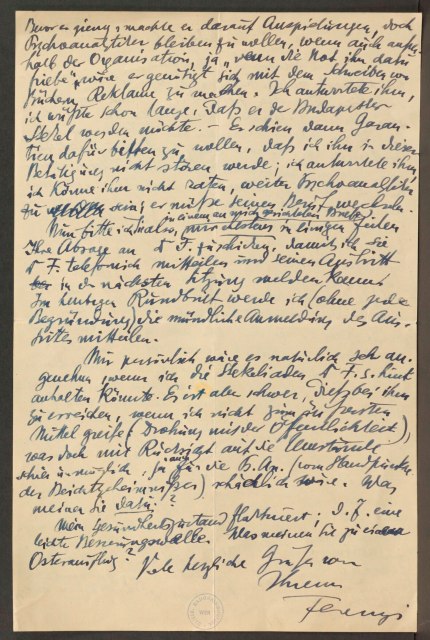 Bevor er gieng, machte er darauf Anspielungen, doch
Psychoanalytiker bleiben zu wollen, wenn auch außer-
halb der Organisation, ja „wenn die Not ihn dazu
triebe" wäre er genötigt sich mit dem Schreiben von
Büchern Reklame zu machen. Ich antwortete ihm,
ich wüsste schon lange, daß er der Budapester
Stekel werden möchte. – Es schien dann Garan-
tien dafür bitten zu wollen, daß ich ihn in dieser
Betätigung nicht stören werde; ich antwortete ihm,
ich könne ihm nicht raten, weiter Psychoanalytiker
zu sein; er müsse seinen Beruf wechseln.
in einem an mich gerichteten Briefe
Nun bitte ich Sie also, mir in einigen Zeilen
Ihre Absage an Dr F. zu schicken, damit ich sie
Dr F. telefonisch mitteilen und seinen Austritt
in der nächsten Sitzung melden kann.
Im heutigen Rundbrief werde ich (ohne jede
Begründung) die mündliche Anmeldung des Aus-
trittes mitteilen.
Mir persönlich wäre es natürlich sehr an-
genehm, wenn ich die Stekeliaden Dr F.s hint-
anhalten könnte. Es ist aber schwer, dies bei ihm
zu erreichen, wenn ich nicht zum
Mittel greife (Drohung mit der Öffentlichkeit),
was doch mit Rücksicht auf die Umstände
unmöglich, ja auch für die Ps.An. (vom Standpunkte
des Beichtgeheimnisses) schädlich wäre. Was
meinen Sie dazu?
Mein Gesundheitszustand fluktuiert; d. Z. eine
leichte Besserungswelle. Was meinen Sie zu einem
Osterausflug?
Viele herzliche Grüße von
Ihrem
Ferenczi